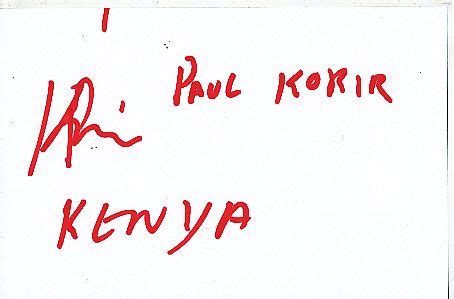 PAUL KOKIR
KENYA